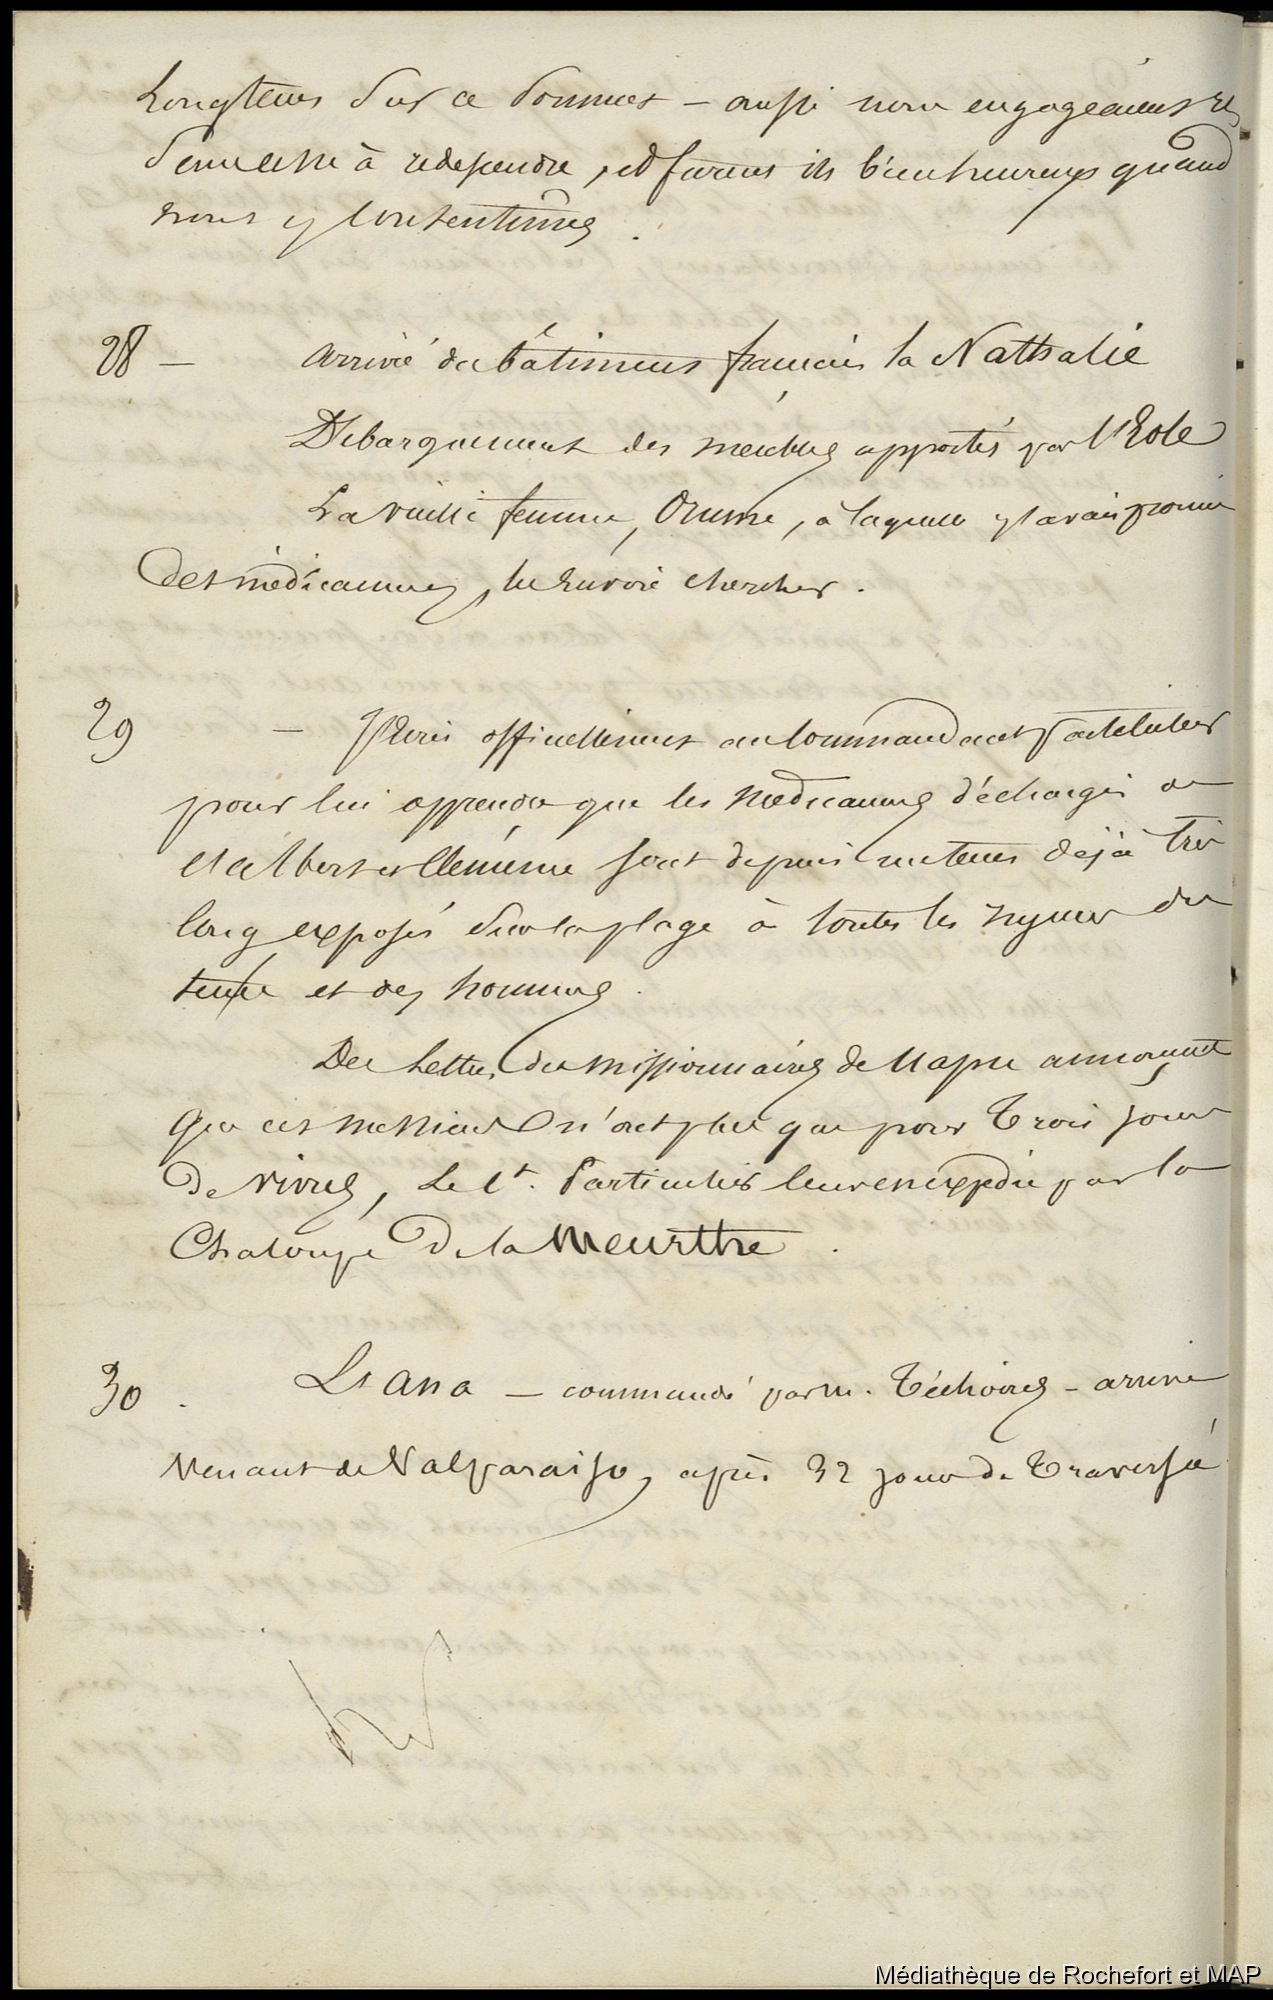 Longtems sur ce sommet – aussi nous engageaient ils
sans cesse à redescendre, et furent ils bien heureux quand
nous y consentimes.
28 – arrivé du bâtiment français la Nathalie
Débarquement des meubles apportés par l'Eole
La vieille femme, , à laquelle j'avais promis
des médicamens, les envoie chercher.
29 – J'écris officiellement au Commandant particulier
pour lui apprendre que les médicamens déchargés de
et Clémence sont depuis un tems déjà très
long exposés sur la plage à toutes les rigueurs du
tems et des hommes.
Des lettres des missionnaires de annoncent
que ces messieurs n'ont plus que pour trois jours
de vivres, Le Ct. Particulier leur en expédie par la
Chaloupe de la Meurthe.
30 . L' Ana – commandé par m. – arrive
Venant de Valparaiso, après 32 jours de traversée